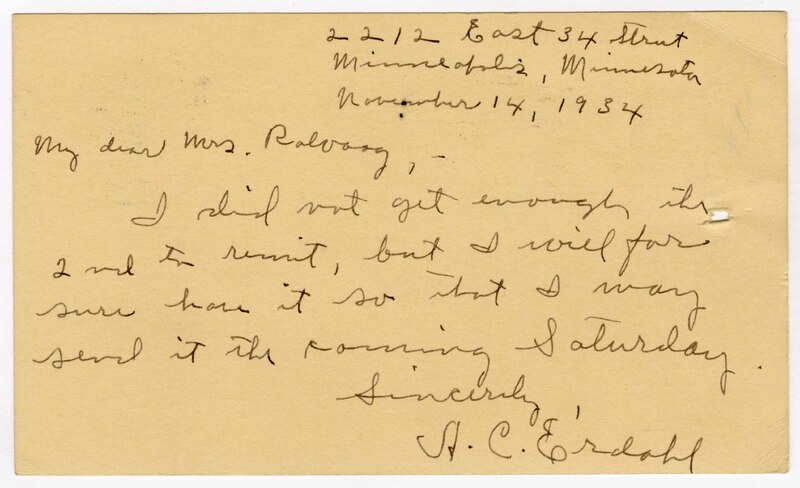 2212 East 34 Street
Minneapolis, Minnesota
November 14, 1934
My dear Mrs. Rolvaag, -
I did not get enough the
2nd to remit, but I will for
sure have it so that I may
send it the coming Saturday.
Sincerely,
A. C. Erdahl